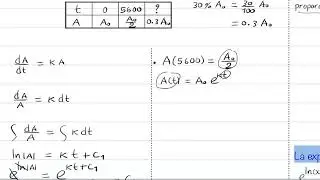 t 0 5600 ?
A A₀ A₀/2 0.3A₀
30% A₀ = 30/100 A₀
= 0.3 A₀
dA/dt = KA
dA/A = K dt
∫ dA/A = ∫ K dt
ln|A| = Kt + C₁
e^ln|A| = e^(Kt + C₁)
• A(5600) = A₀/2
A(t) = A₀ e^(Kt)
La exp